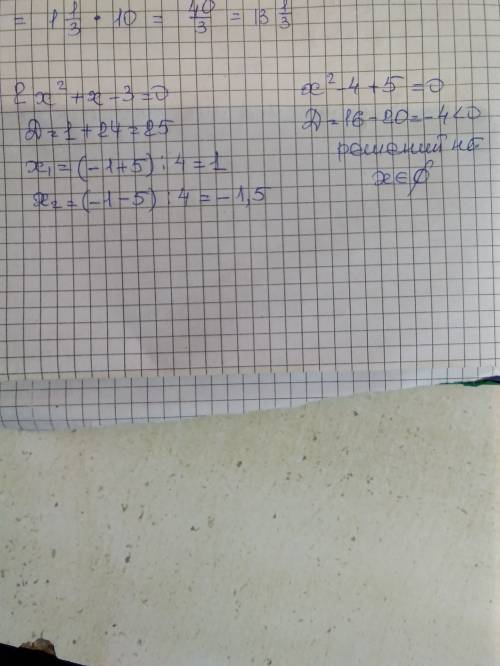 = 1 1/3 • 10 = 40/3 = 13 1/3
2x² + x - 3 = 0
D = 1 + 24 = 25
x₁ = (-1+5) : 4 = 1
x₂ = (-1-5) : 4 = -1,5
x² - 4 + 5 = 0
D = 16 - 20 = -4 < 0
решений нет
x ∈ ∅